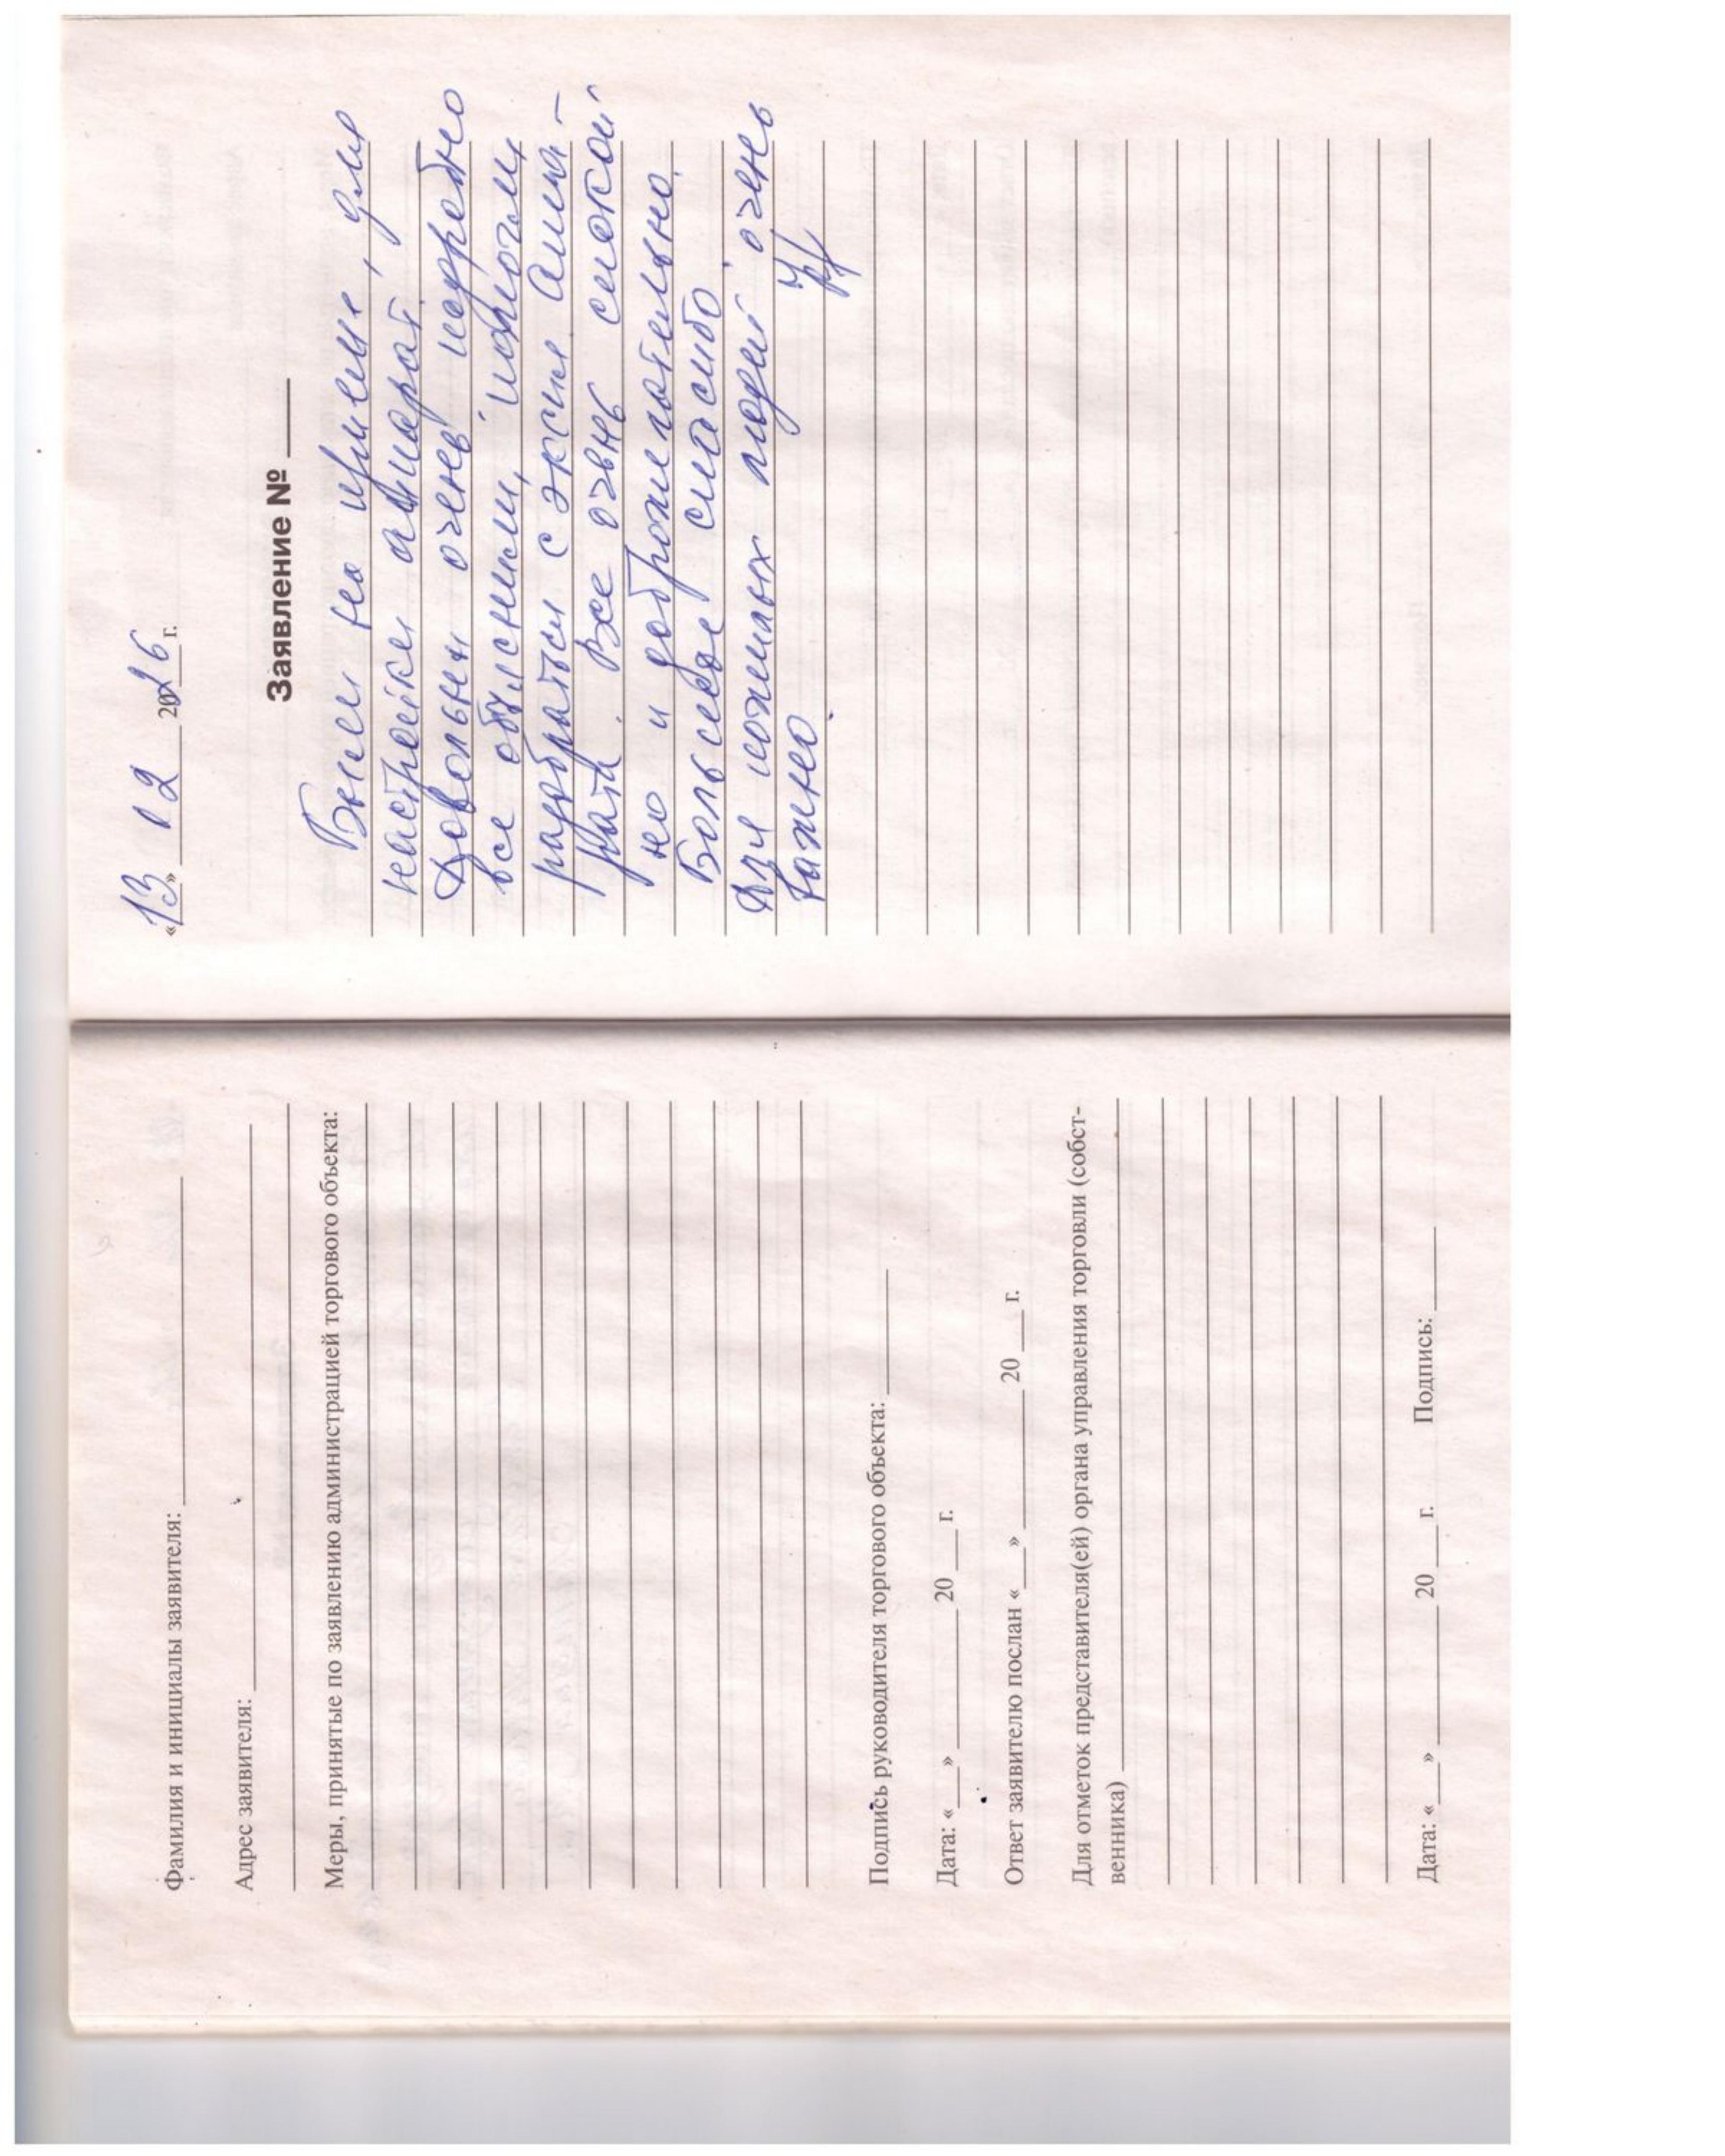 Фамилия и инициалы заявителя:
Адрес заявителя:
Меры, принятые по заявлению администрацией торгового объекта:
Подпись руководителя торгового объекта:
Дата: «___» ______ 20 ___ г.
Ответ заявителю послан «___» ______ 20 ___ г.
Для отметок представителя(ей) органа управления торговли (собст-
венника)
Дата: «___» ______ 20 ___ г. Подпись:
«13» 02 2026 г.
Заявление №
на приеме, для
настройки аппарат.
Довольны очень подробно
все объяснили, помогли
разобраться с экспл. аппа-
рата. Все очень спокой
но и доброжелательно.
Большое спасибо
Для пожилых людей очень
важно.